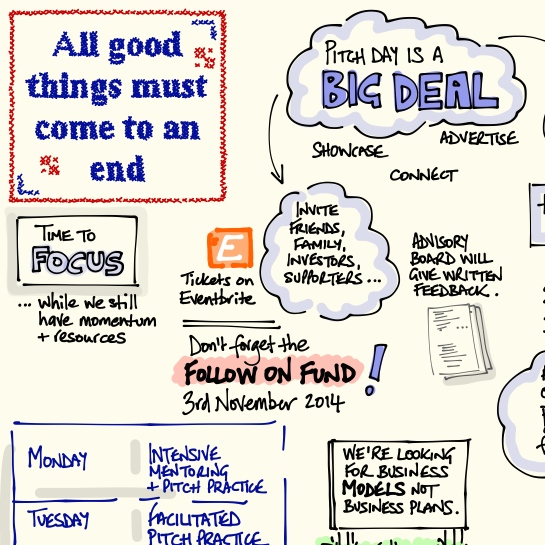 All good
things must
come to an
end
PITCH DAY IS A
BIG DEAL
SHOWCASE
ADVERTISE
CONNECT
TIME TO
FOCUS
... while we still
have momentum
+ resources
E
Tickets on
Eventbrite
INVITE
FRIENDS,
FAMILY,
INVESTORS,
SUPPORTERS ...
ADVISORY
BOARD WILL
GIVE WRITTEN
FEEDBACK.
Don't forget the
FOLLOW ON FUND !
3rd November 2014
MONDAY
INTENSIVE
MENTORING
+ PITCH PRACTICE
TUESDAY
FACILITATED
PITCH PRACTICE
WE'RE LOOKING
FOR BUSINESS
MODELS NOT
BUSINESS PLANS.